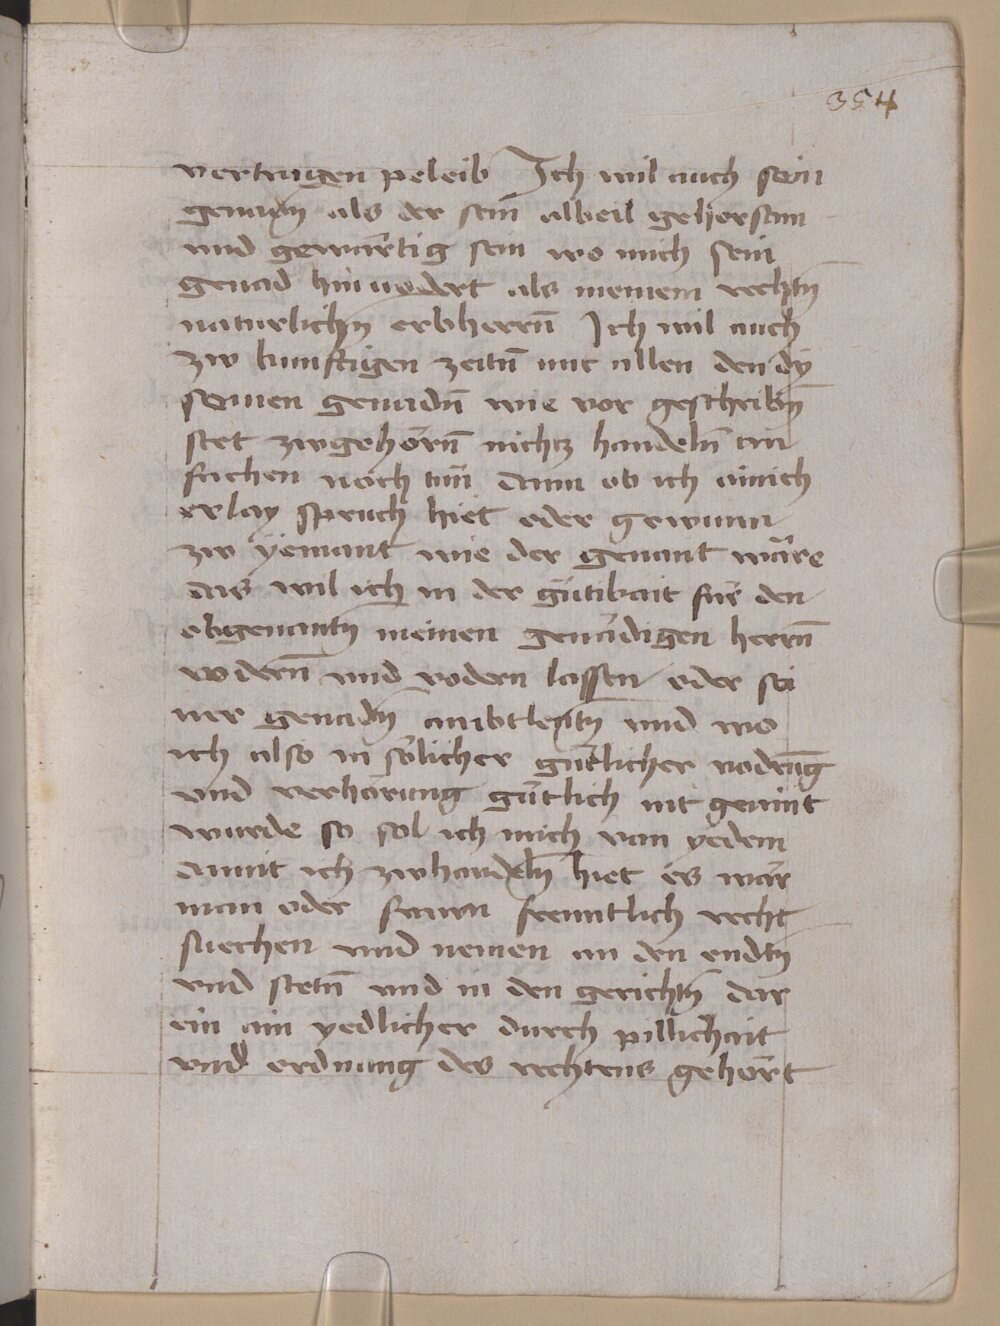 354
vertragen peleib Ich wil auch sein
genadn̄ als der sein albeil gehorsam
vnd gewärtig sein wo mich sein
genad hin vodert als meinem rechtn̄
naturlichn̄ erbherrn̄ Ich wil auch
zw kunftigen zeitn̄ mit allen den dy
seinen genadn̄ wie vor geschribn̄
stet zwgehörn̄ nichtz handeln̄ an
fachen noch tun̄ dann ob ich ainich
erlay spruch hiet oder gewunn
zw yemant wie der genant wäre
das wil ich in der gütikait für den
obgenantn̄ meinen genädigen herrn̄
vodern̄ und vodern lassen oder sei
ner genadn̄ ambtleẅtn̄ und wo
ich also in sölicher gütlicher vodrūg
vnd verhörung gütlich nit geaint
wurde so sol ich mich van yedem
damit ich zwhandeln̄ hiet es wär
man oder frawn freuntlich recht
suechen vnd nemen an den endtn̄
vnd stetn̄ vnd in den gerichtn̄ dar
ein ain yedlicher durch pillichait
vnd ordnung des rechtens gehört